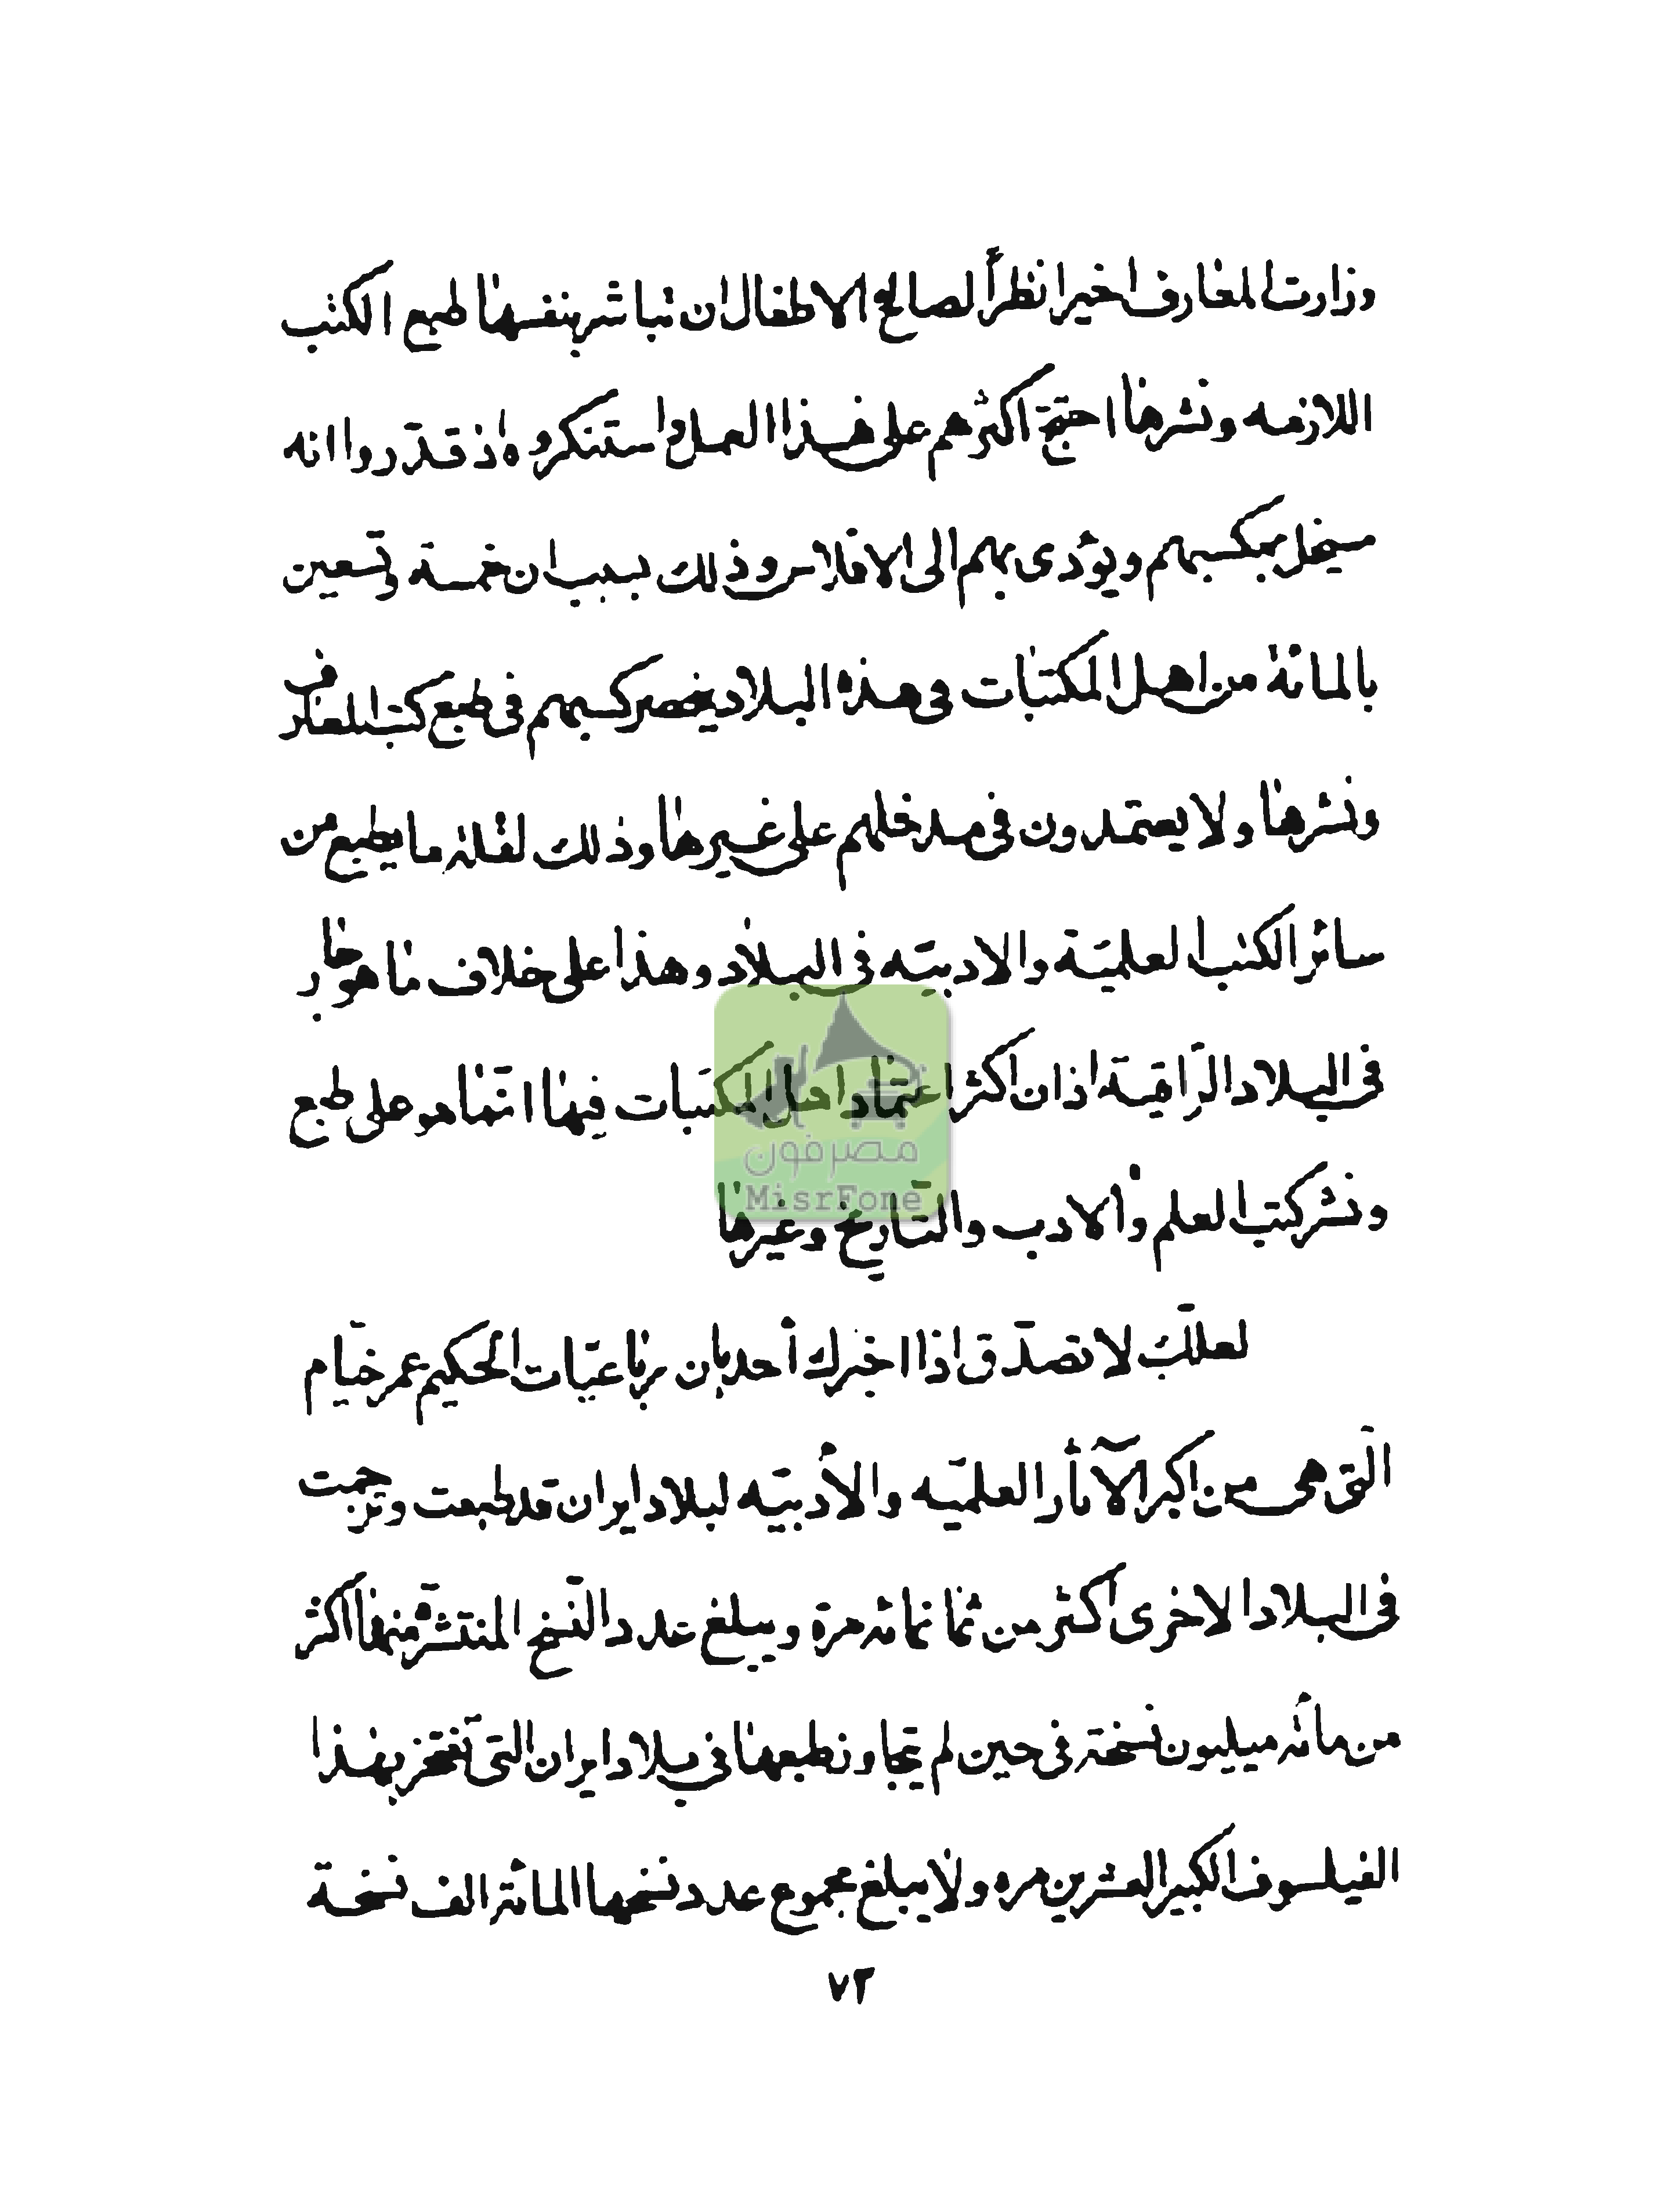 وزارت المعارف اخيرا نظراً لصالح الاطفال ان تباشر بنفسها طبع الكتب
اللازمه ونشرها احتجّ اكثرهم على هذا العمل واستنكروه اذ قدّروا انه
سيخل بمكسبهم ويؤدى بهم الى الافلاس وذلك بسبب ان خمسة وتسعين
بالمائة من اهل المكتبات فى هذه البلاد ينحصر كسبهم فى طبع كتب المعارف
ونشرها ولا يعتمدون فى مدخلهم على غيرها وذلك لقلة ما يطبع من
سائر الكتب العلميّة والادبيّه فى البلاد وهذا على خلاف ما هو جار
فى البلاد الرّاقية اذ ان اكثر اعتماد اهل المكتبات فيها انّما هو على طبع
ونشر كتب العلم والادب والتّاريخ وغيرها
لعلّك لا تصدّق اذا اخبرك أحد بان رباعيّات الحكيم عمر خيّام
الّتى هى من اكبر الآثار العلميّه والأدبيّه لبلاد ايران قد طبعت وترجمت
فى البلاد الاخرى اكثر من ثمانمائة مرة ويبلغ عدد النّسخ المنتشرة منها اكثر
من مائة ميليون نسخة فى حين لم يتجاوز طبعها فى بلاد ايران التى تفتخر بهذا
الفيلسوف الكبير العشرين مره ولا يبلغ مجموع عدد نسخها المائة الف نسخة
٧٢
مصرفون
MisrFone